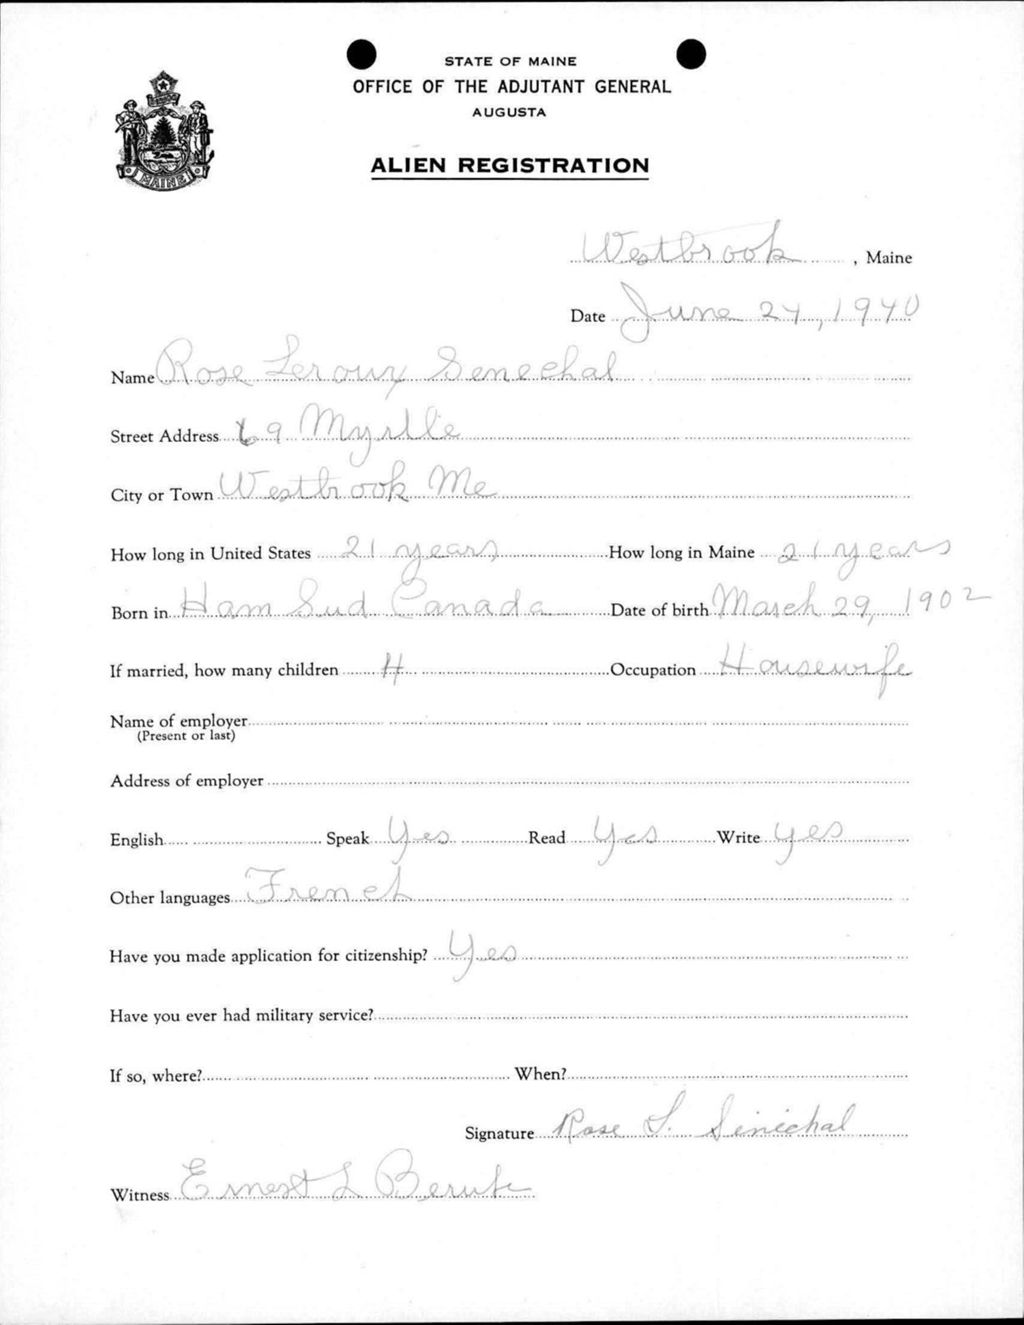 STATE OF MAINE
OFFICE OF THE ADJUTANT GENERAL
AUGUSTA
ALIEN REGISTRATION
MAINE
Westbrook, Maine
Date June 24, 1940
Name Rose Leroux Senechal
Street Address 69 Myrtle
City or Town Westbrook Me
How long in United States 21 years How long in Maine 21 years
Born in Ham Sud Canada Date of birth March 29, 1902
If married, how many children 4 Occupation Housewife
Name of employer
(Present or last)
Address of employer
English Speak Yes Read Yes Write yes
Other languages French
Have you made application for citizenship? Yes
Have you ever had military service?
If so, where? When?
Signature Rose L. Sénéchal
Witness Ernest L